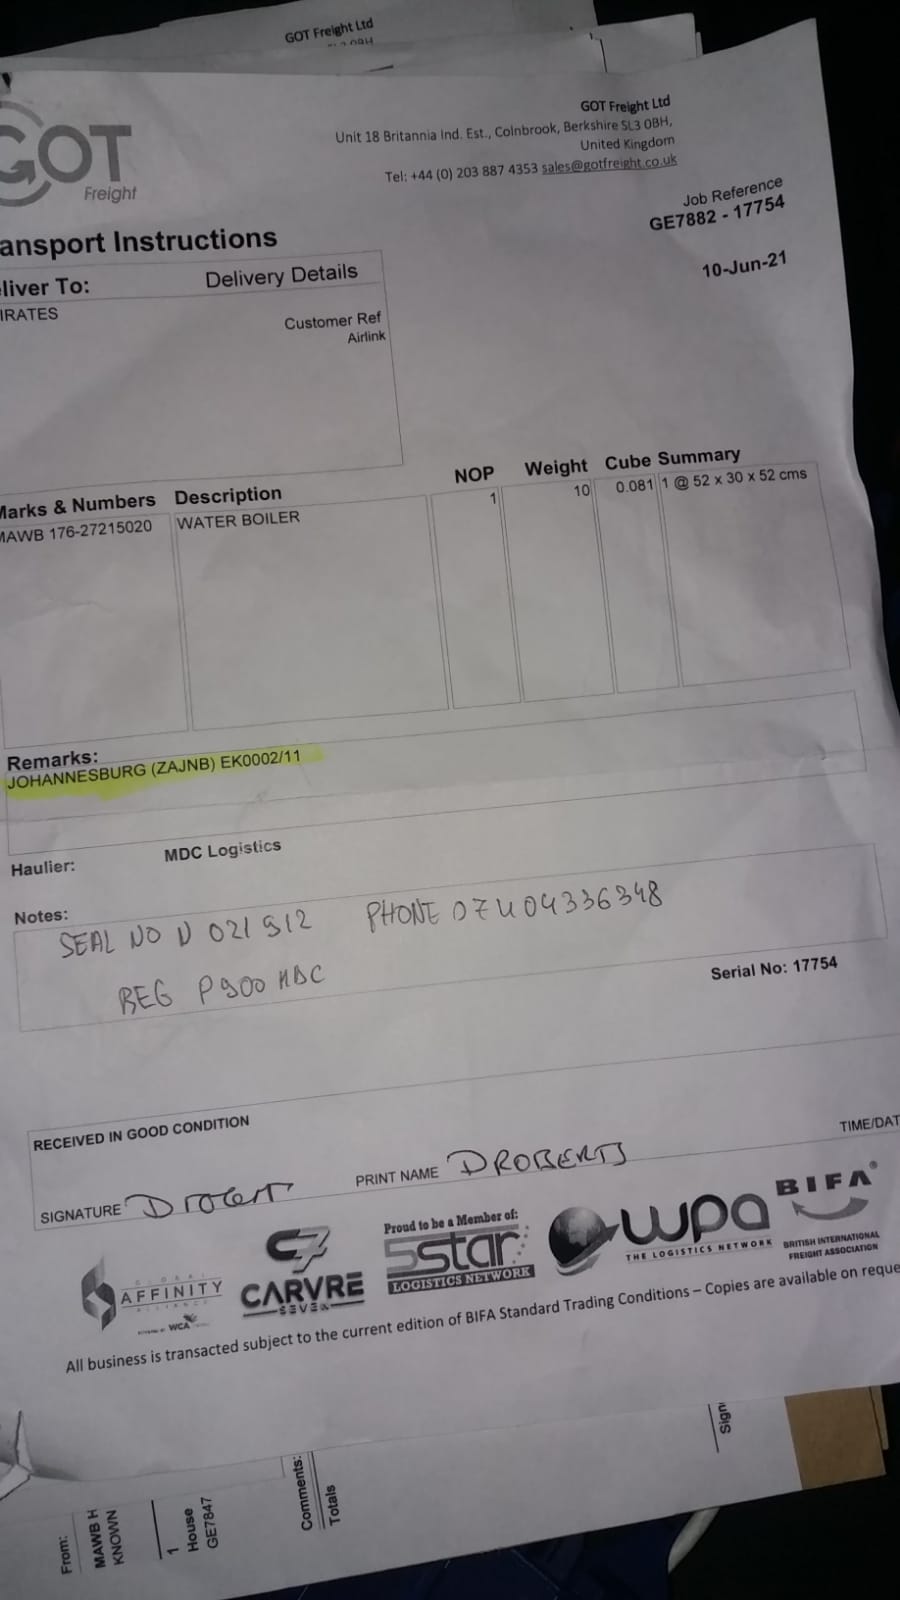 GOT Freight Ltd
GOT
Freight
GOT Freight Ltd
Unit 18 Britannia Ind. Est., Colnbrook, Berkshire SL3 0BH,
United Kingdom
Tel: +44 (0) 203 887 4353 sales@gotfreight.co.uk
Job Reference
GE7882 - 17754
10-Jun-21
ansport Instructions
liver To:
Delivery Details
IRATES
Customer Ref
Airlink
Marks & Numbers Description NOP Weight Cube Summary
MAWB 176-27215020 WATER BOILER 1 10 0.081 1 @ 52 x 30 x 52 cms
Remarks:
JOHANNESBURG (ZAJNB) EK0002/11
Haulier: MDC Logistics
Notes:
SEAL NO N 021912 PHONE 07404336348
REG P900 MDC
Serial No: 17754
RECEIVED IN GOOD CONDITION
TIME/DAT
SIGNATURE
PRINT NAME D ROBERTS
GLOBAL
AFFINITY
ALLIANCE
POWERED BY WCA
C7
CARVRE
SEVEN
Proud to be a Member of:
5star
LOGISTICS NETWORK
wpa
THE LOGISTICS NETWORK
BIFA
BRITISH INTERNATIONAL
FREIGHT ASSOCIATION
All business is transacted subject to the current edition of BIFA Standard Trading Conditions – Copies are available on reque
From:
MAWB H
KNOWN
1
House
GE7847
Comments:
Totals
Sign